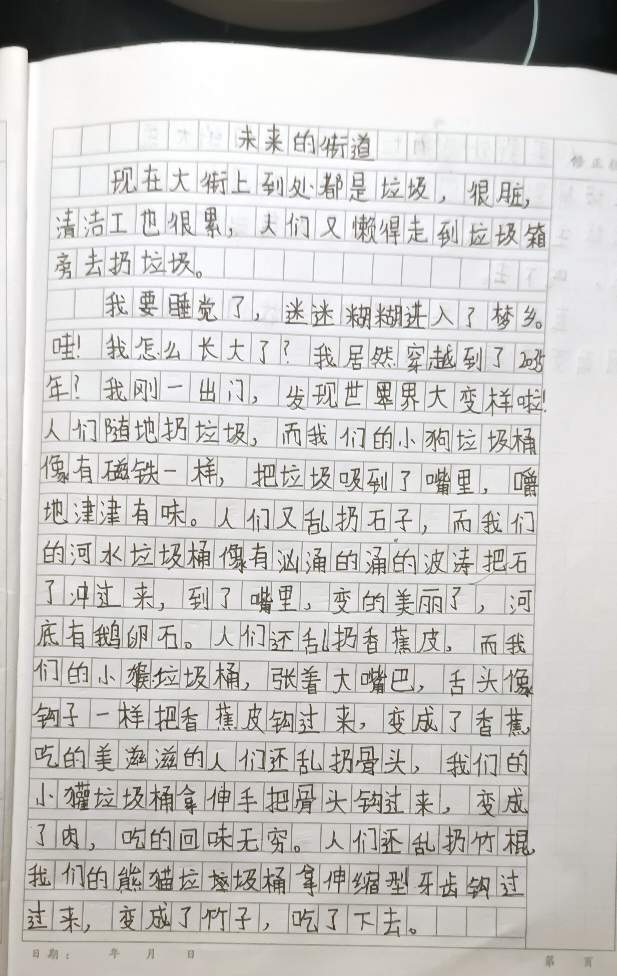 未来的街道
现在大街上到处都是垃圾，很脏，
清洁工也很累，人们又懒得走到垃圾箱
旁去扔垃圾。
我要睡觉了，迷迷糊糊进入了梦乡。
哇！我怎么长大了？我居然穿越到了2035
年？我刚一出门，发现世界界大变样啦！
人们随地扔垃圾，而我们的小狗垃圾桶
像有磁铁一样，把垃圾吸到了嘴里，嚼
地津津有味。人们又乱扔石子，而我们
的河水垃圾桶像有汹涌的涌的波涛把石
了冲过来，到了嘴里，变的美丽了，河
底有鹅卵石。人们还乱扔香蕉皮，而我
们的小猴垃圾桶，张着大嘴巴，舌头像
钩子一样把香蕉皮钩过来，变成了香蕉，
吃的美滋滋的人们还乱扔骨头，我们的
小獾垃圾桶拿伸手把骨头钩过来，变成
了肉，吃的回味无穷。人们还乱扔竹棍，
我们的熊猫垃圾桶拿伸缩型牙齿钩过
过来，变成了竹子，吃了下去。
日期： 年 月 日
第 页